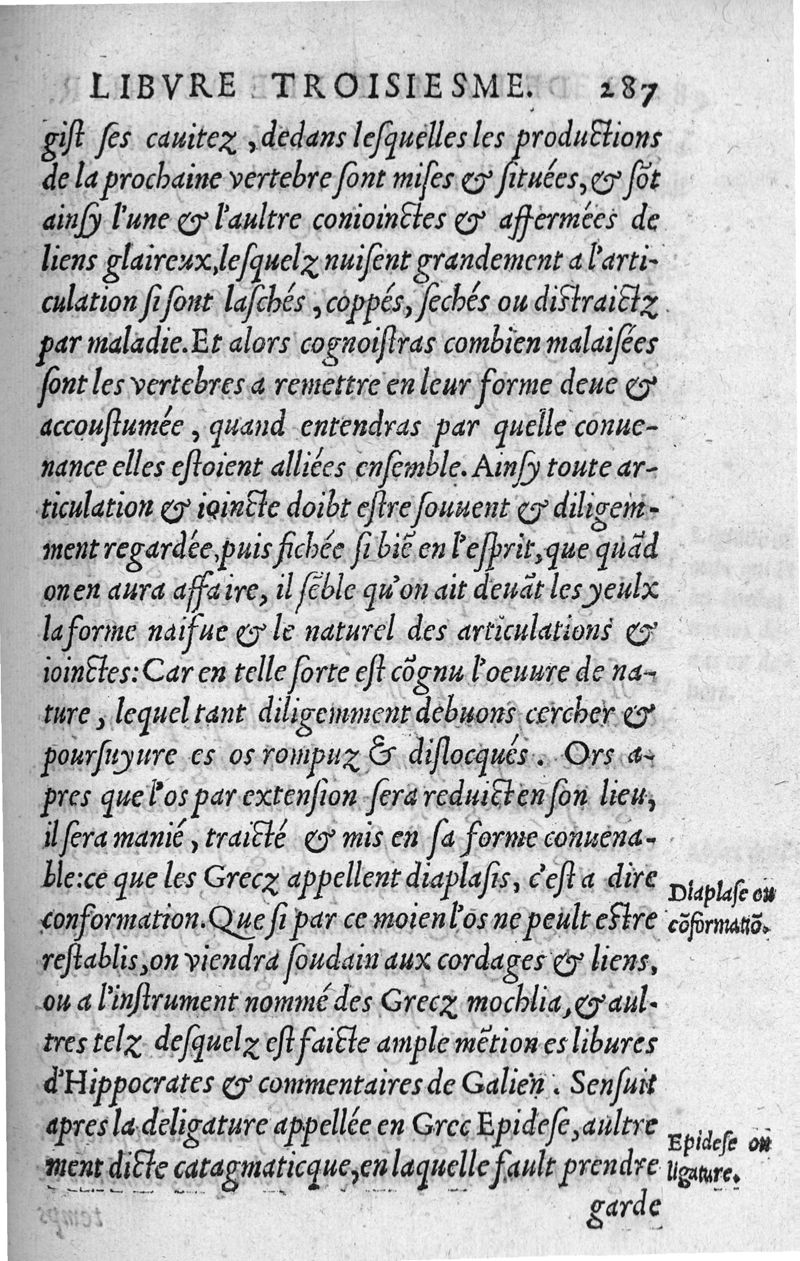 LIBVRE TROISIESME. 287
gist ses cauitez, dedans lesquelles les productions
de la prochaine vertebre sont mises & situées, & sõt
ainsy l'une & l'aultre conioinctes & affermées de
liens glaireux, lesquelz nuisent grandement a l'arti-
culation si sont laschés, coppés, sechés ou distraictz
par maladie. Et alors cognoistras combien malaisées
sont les vertebres a remettre en leur forme deue &
accoustumée, quand entendras par quelle conue-
nance elles estoient alliées ensemble. Ainsy toute ar-
ticulation & ioincte doibt estre souuent & diligem-
ment regardée, puis fichée si biẽ en l'esprit, que quãd
on en aura affaire, il sẽble qu'on ait deuãt les yeulx
la forme naifue & le naturel des articulations &
ioinctes: Car en telle sorte est cõgnu l'oeuure de na-
ture, lequel tant diligemment debuons cercher &
poursuyure es os rompuz & dislocqués. Ors a-
pres que l'os par extension sera reduict en son lieu,
il sera manié, traicté & mis en sa forme conuena-
ble: ce que les Grecz appellent diaplasis, c'est a dire
Diaplase ou
conformation. Que si par ce moien l'os ne peult estre
cõformatiõ.
restablis, on viendra soudain aux cordages & liens,
ou a l'instrument nommé des Grecz mochlia, & aul-
tres telz desquelz est faicte ample mẽtion es libures
d'Hippocrates & commentaires de Galien. Sensuit
apres la deligature appellée en Grec Epidese, aultre
Epidese ou
ment dicte catagmaticque, en laquelle fault prendre
ligature.
garde